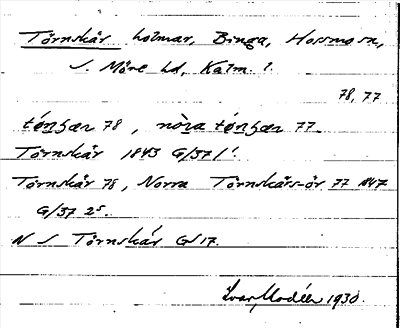 Törnskär holmar, Binga, Hossmo sn,
S. Möre hd, Kalm. l.
78, 77
tö́nʂær 78, nòra tö́nʂær 77
Törnskär 1843 G/37/1
Törnskär 78, Norra Törnskärs-ör 77 1847
G/37 25.
N S Törnskär GS 17.
Ivar Modéer 1930.